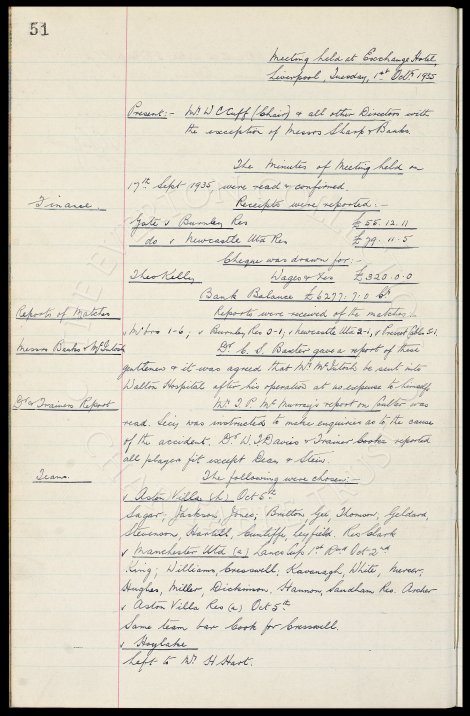 51
Meeting held at Exchange Hotel,
Liverpool, Tuesday, 1st Octr 1935
Present:- Mr W C Cuff (Chair) & all other Directors with
the exception of Messrs Sharp & Banks.
The Minutes of Meeting held on
17th Sept 1935, were read & confirmed.
Finance. Receipts were reported:-
Gate v Burnley Res £55.12.11
do v Newcastle Utd Res £79.11.5
Cheque was drawn for:-
Theo Kelly Wages &c £320.0.0
Bank Balance £6277.7.0 Cr.
Reports of Matches Reports were received of the matches:-
v W'bro 1-6; v Burnley Res 3-1; v Newcastle Utd 2-1; v Prescot Cables 5-1.
Messrs Banks & McIntosh Dr. C. S. Baxter gave a report of these
gentlemen & it was agreed that Mr McIntosh be sent into
Walton Hospital after his operation at no expense to himself.
Dr & Trainers Report Mr T P McMurray's report on was
read. Secy was instructed to make enquiries as to the cause
of the accident. Dr W. J Davies & Trainer Cooke reported
all players fit except Dean & Stein.
Teams. The following were chosen:-
v Aston Villa (h) Oct 5th
Sagar, Jackson, Jones; Britton Gee, Thomson, Geldard,
Stevenson, Hartill, Cunliffe, Leyfield. Res Clark
v Manchester Utd (a) Lancs Cup 1st Rnd Oct 2nd
King; Williams Cresswell, Kavanagh, White, Mercer,
Hughes, Miller, Dickinson, Hannon, Sandham Res. Archer
v Aston Villa Res (a) Oct 5th
Same team bar Cook for Cresswell.
v Hoylake
Left to Mr. H Hart.